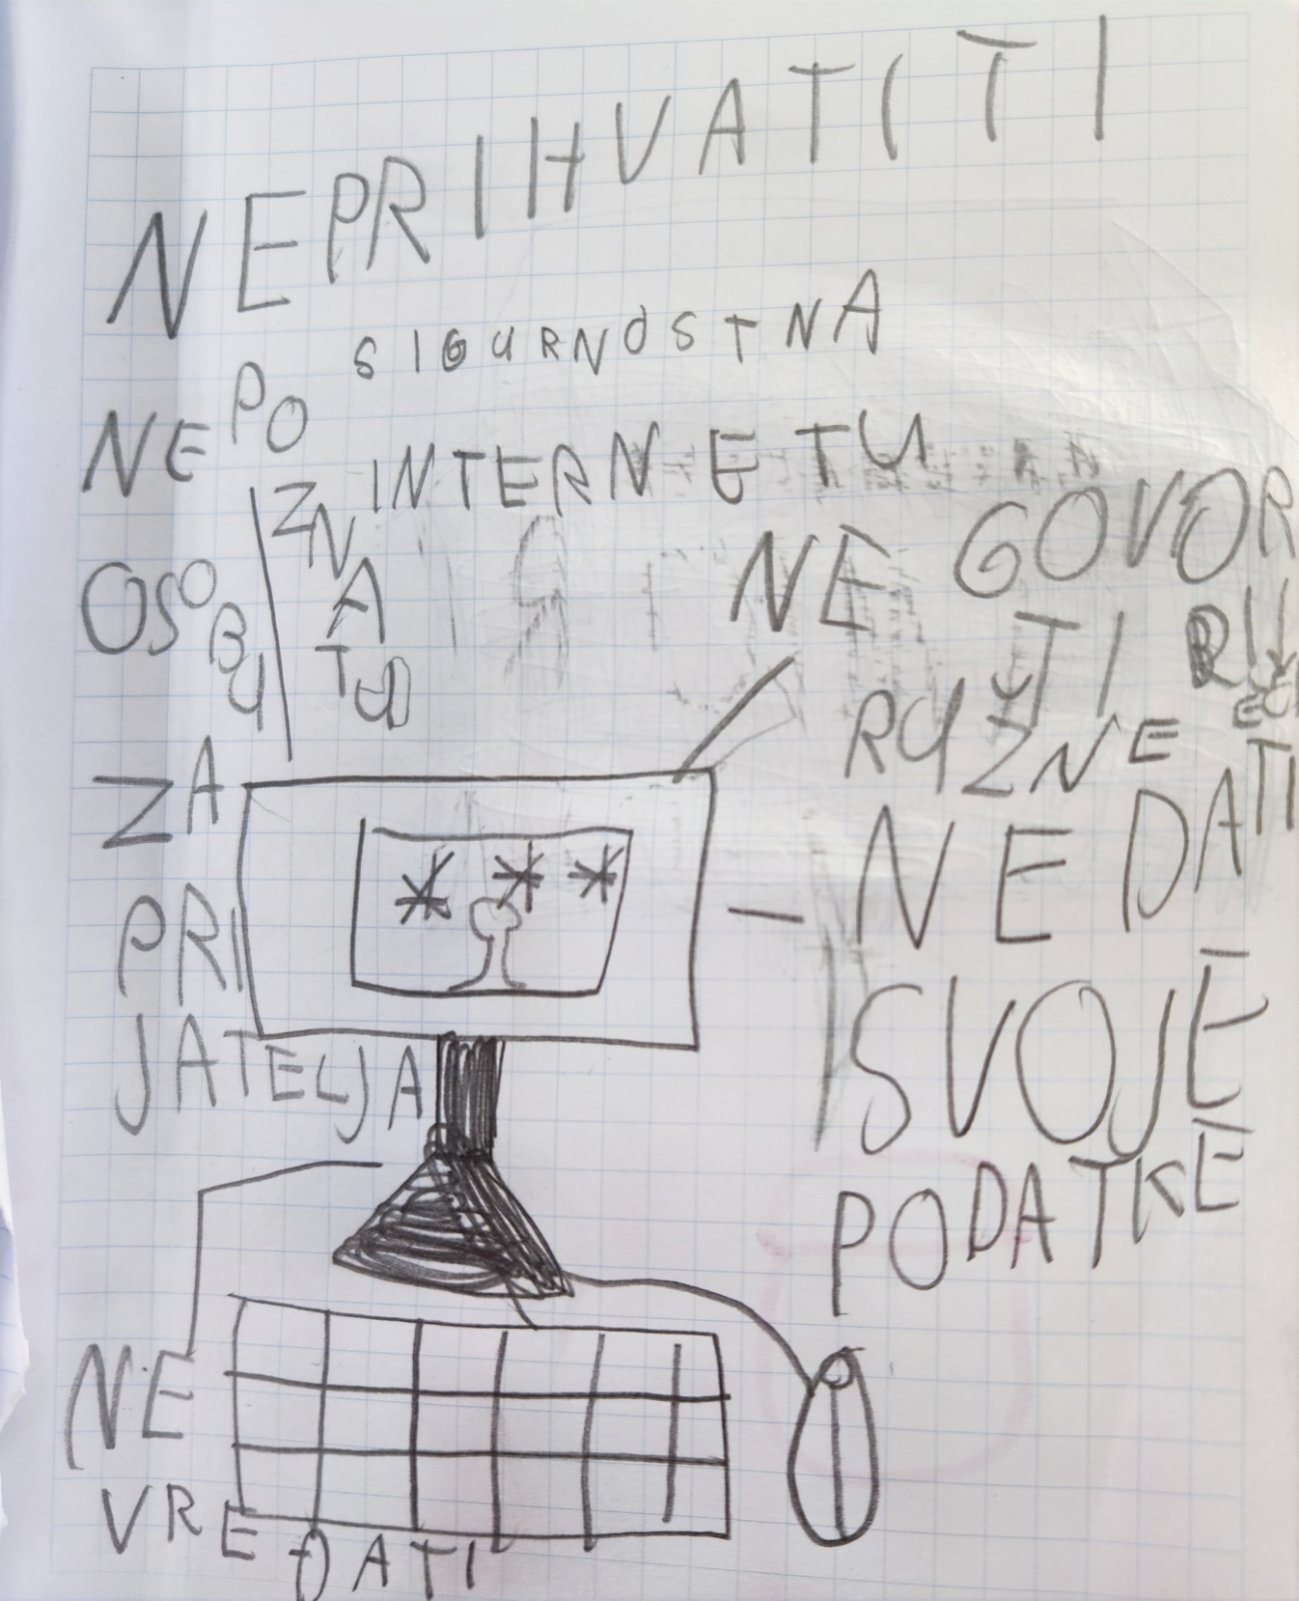 NEPRIHVATITI
SIGURNOST NA
INTERNETU
NEPO
ZNATU
OSOBU
ZA
PRI
JATELJA
NE GOVOR
TI
RUŽNE
NE DATI
SVOJE
PODATKE
NE
VREĐATI